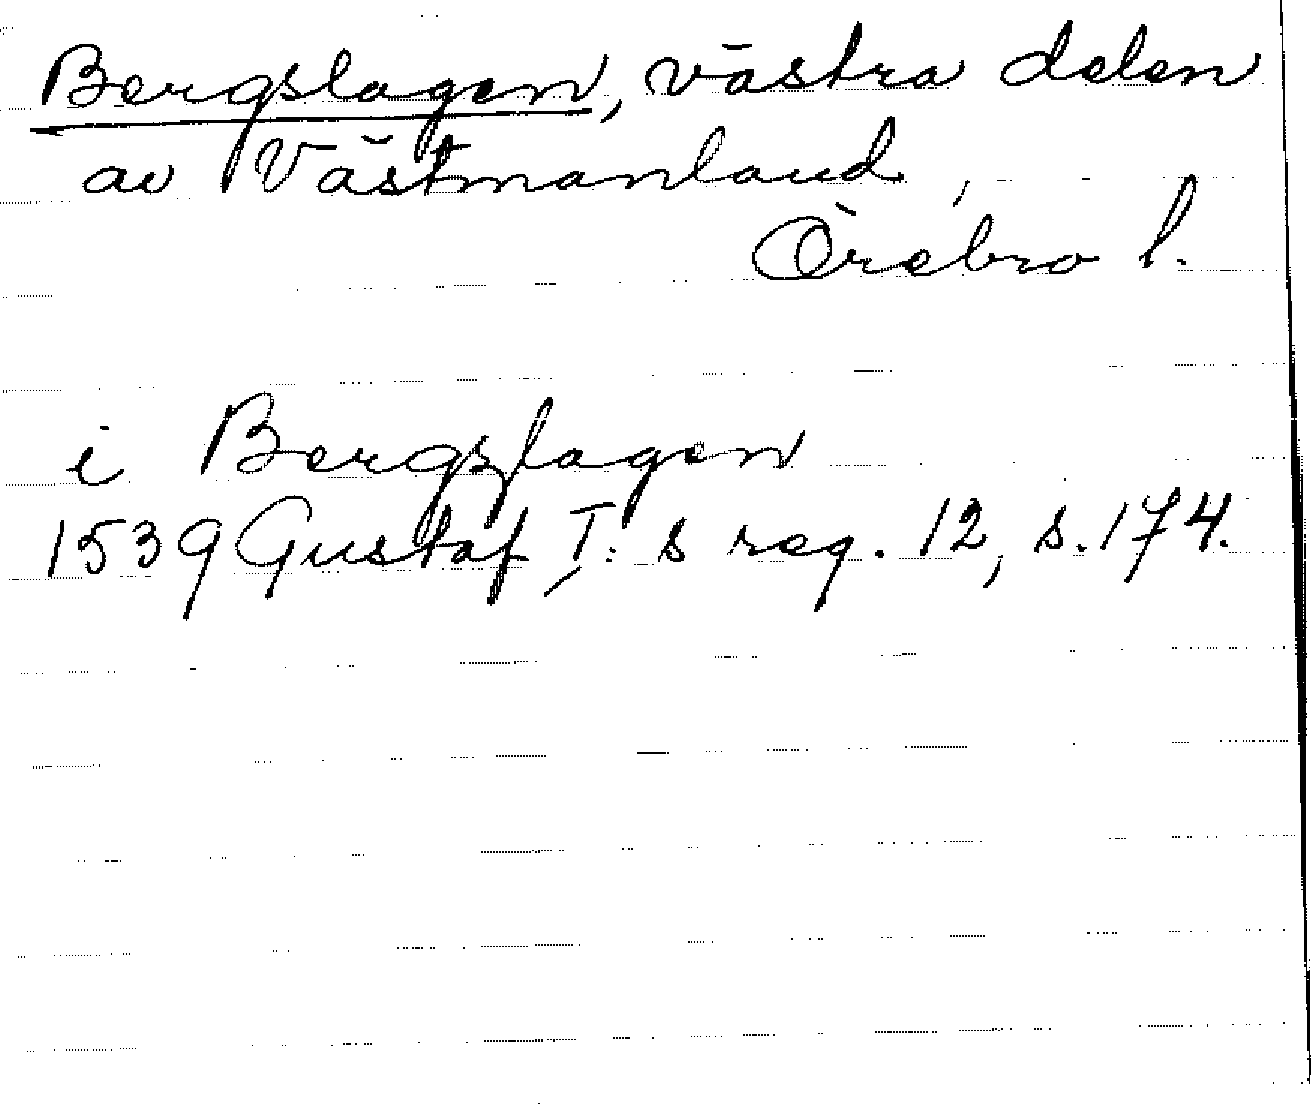 Bergslagen, västra delen
av Västmanland,
Örebro l.
i Bergslagen
1539 Gustaf I: s reg. 12, s. 174.